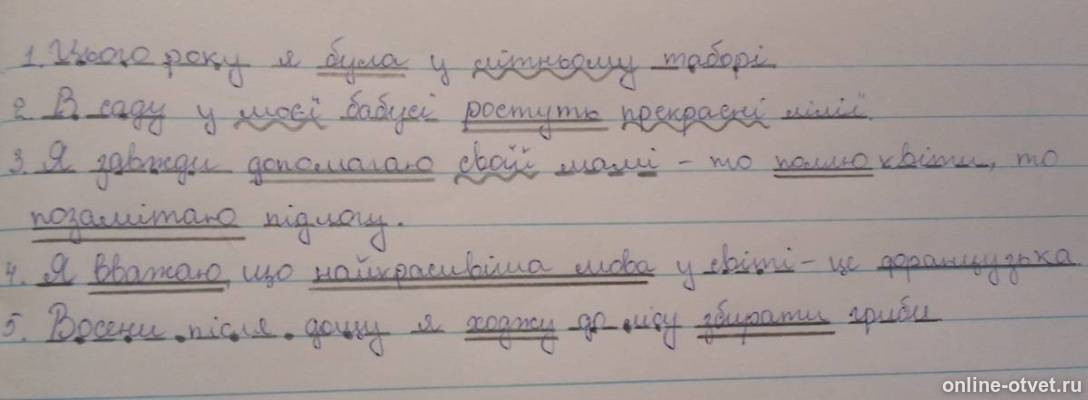 1. Цього року я була у літньому таборі.
2. В саду у моєї бабусі ростуть прекрасні лілії.
3. Я завжди допомагаю своїй мамі - то полию квіти, то
позамітаю підлогу.
4. Я вважаю, що найкрасивіша мова у світі - це французька
5. Восени після дощу я ходжу до лісу збирати гриби
online-otvet.ru